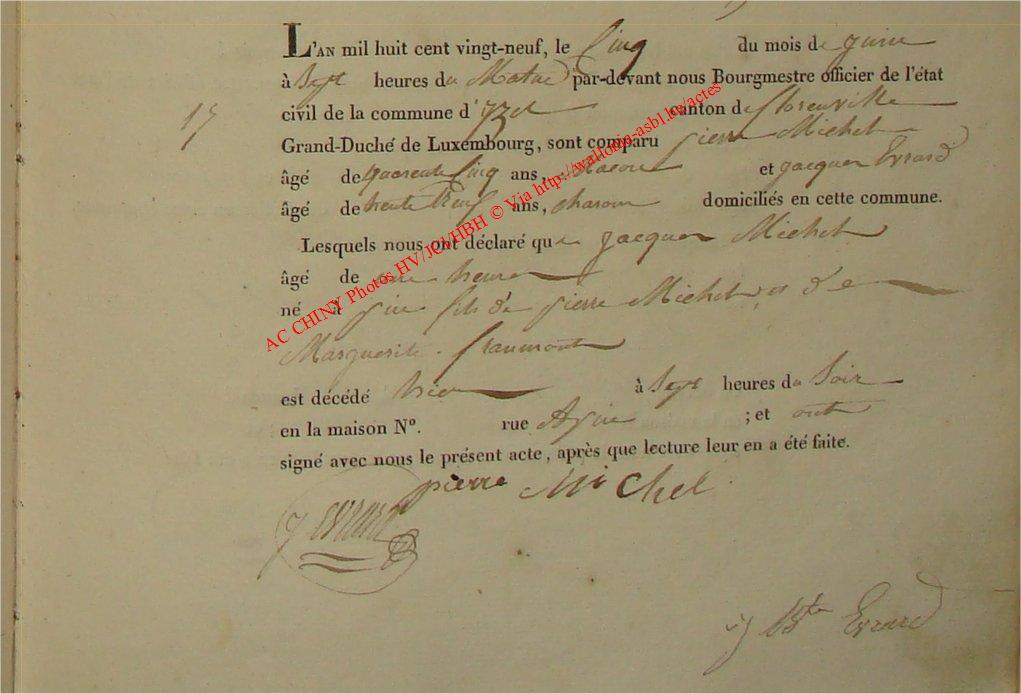 L'AN mil huit cent vingt-neuf, le Cinq du mois de juin
à Sept heures du Matin par-devant nous Bourgmestre officier de l'état
17
civil de la commune d'yzel canton de florenville
Grand-Duché de Luxembourg, sont comparu pierre Michel
âgé de quarente Cinq ans, et jacques Evrard
âgé de trente neuf ans, charon domiciliés en cette commune.
Lesquels nous ont déclaré que jacques Michel
âgé de heures
né à fils de pierre Michel et de
Marguerite
est décédé hier à Sept heures du Soir
en la maison N°. rue ; et ont
signé avec nous le présent acte, après que lecture leur en a été faite.
pierre Michel
j Evrard
j Bte Evrard
AC CHINY Photos HV/JCJ/HBH © Via http://wallonia-asbl.be/actes